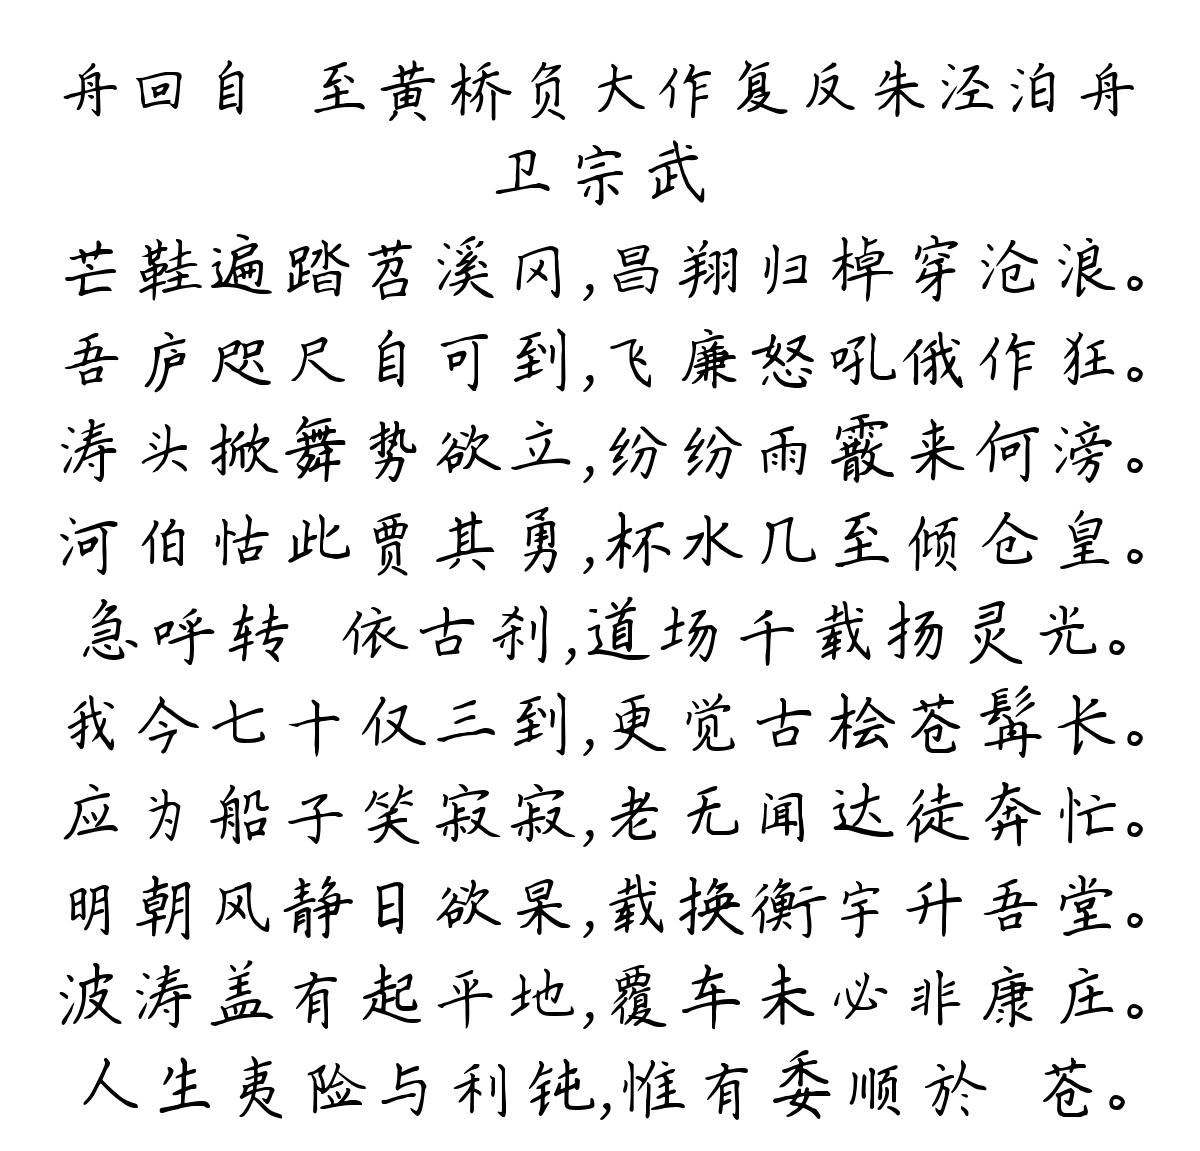 舟回自 至黄桥负大作复反朱泾泊舟
卫宗武
芒鞋遍踏苕溪冈,昌翔归棹穿沧浪。
吾庐咫尺自可到,飞廉怒吼俄作狂。
涛头掀舞势欲立,纷纷雨霰来何滂。
河伯怙此贾其勇,杯水几至倾仓皇。
急呼转 依古刹,道场千载扬灵光。
我今七十仅三到,更觉古桧苍髯长。
应为船子笑寂寂,老无闻达徒奔忙。
明朝风静日欲杲,载换衡宇升吾堂。
波涛盖有起平地,覆车未必非康庄。
人生夷险与利钝,惟有委顺於 苍。